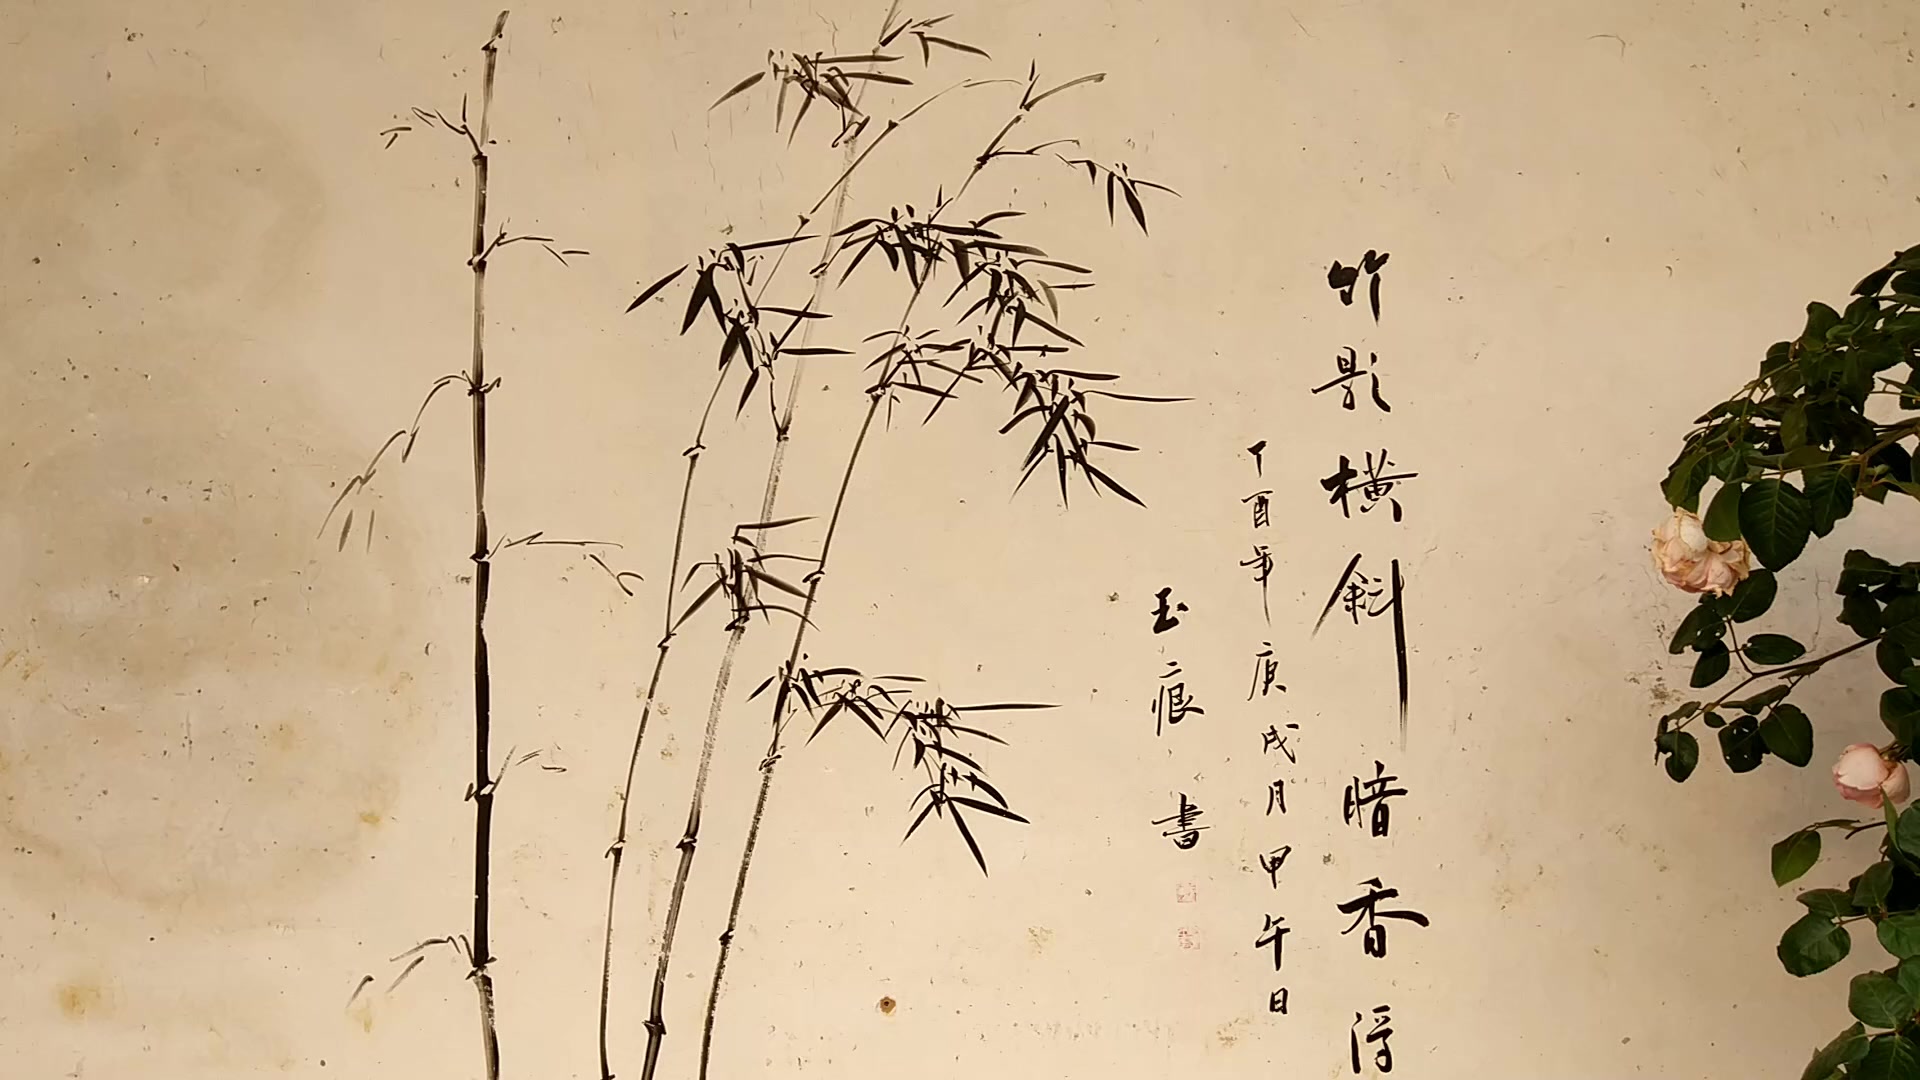 竹影橫斜暗香浮
丁酉年庚戌月甲午日
玉痕書